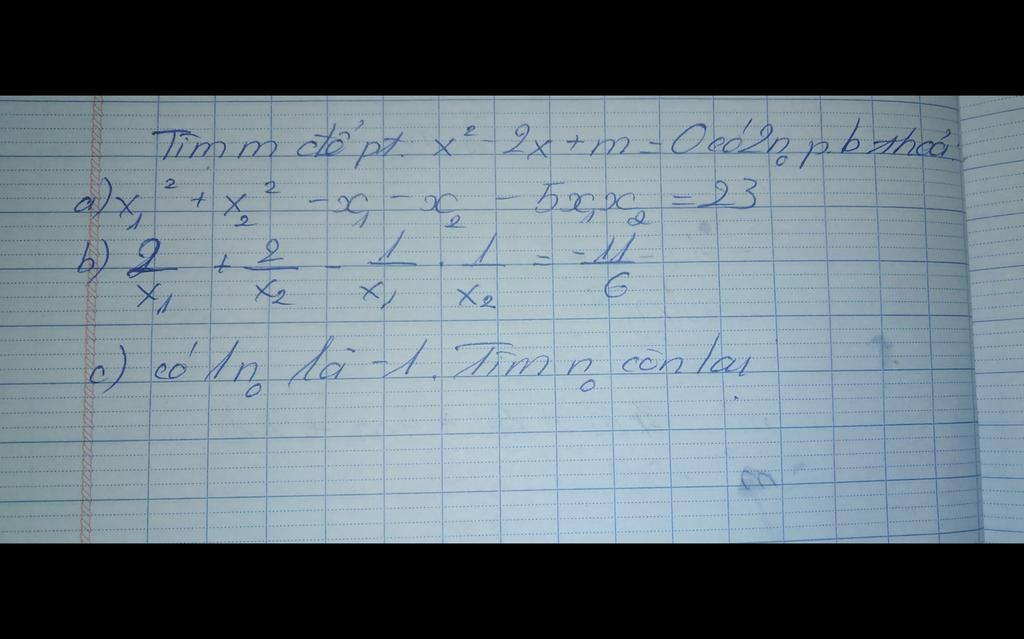 Tìm m để pt: x² - 2x + m = 0 có 2 n₀ p.b thoả
a) x₁² + x₂² - x₁ - x₂ - 5x₁x₂ = 23
b) 2/x₁ + 2/x₂ - 1/x₁ . 1/x₂ = -11/6
c) có 1 n₀ là -1. Tìm n₀ còn lại